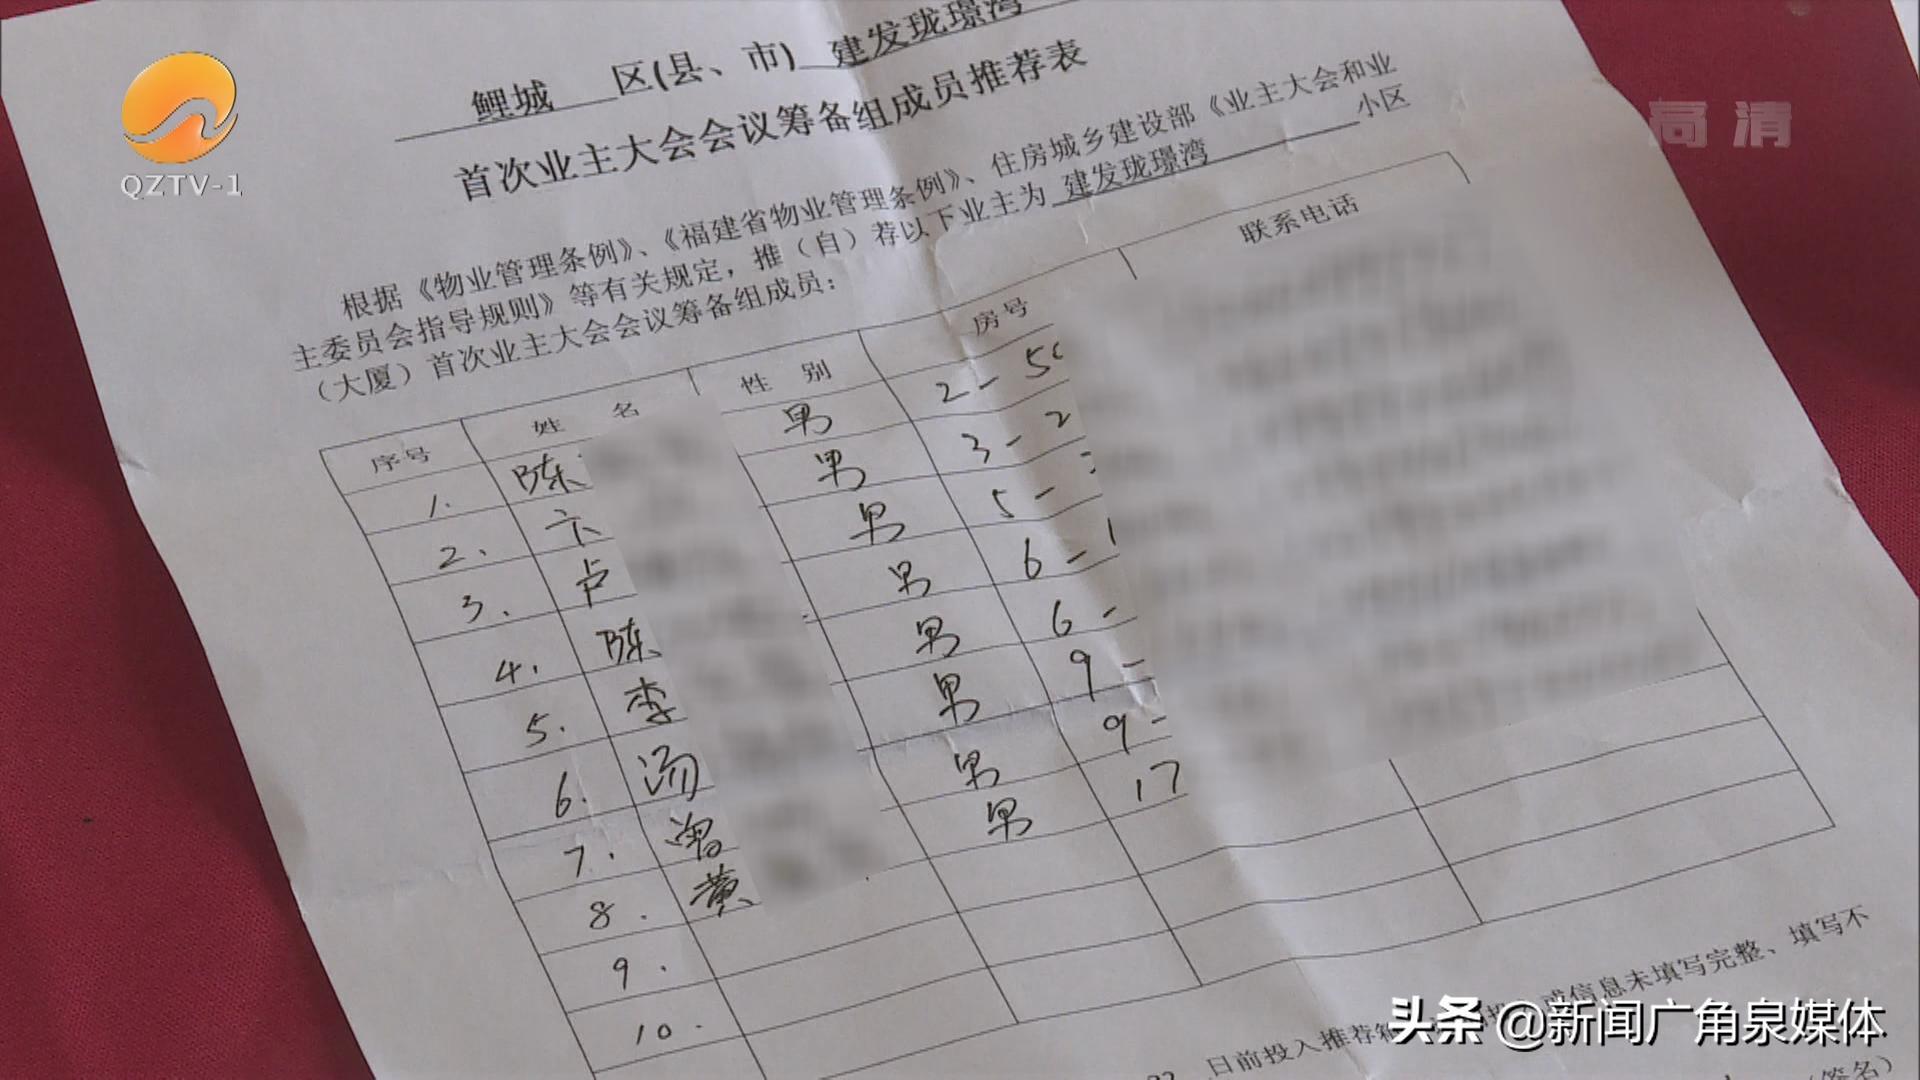 QZTV-1
高清
鲤城 区(县、市) 建发珑璟湾
首次业主大会会议筹备组成员推荐表
根据《物业管理条例》、《福建省物业管理条例》、住房城乡建设部《业主大会和业
主委员会指导规则》等有关规定，推（自）荐以下业主为 建发珑璟湾 小区
（大厦）首次业主大会会议筹备组成员：
序号 姓 名 性 别 房号 联系电话
1. 陈 男 2-50
2. 卞 男 3-2
3. 卢 男 5-
4. 陈 男 6-1
5. 李 男 6-
6. 汤 男 9-
7. 曾 男 9-
8. 黄 男 17
9.
10.
或信息未填写完整、填写不
日前投入推荐箱
(签名)
头条 @新闻广角泉媒体